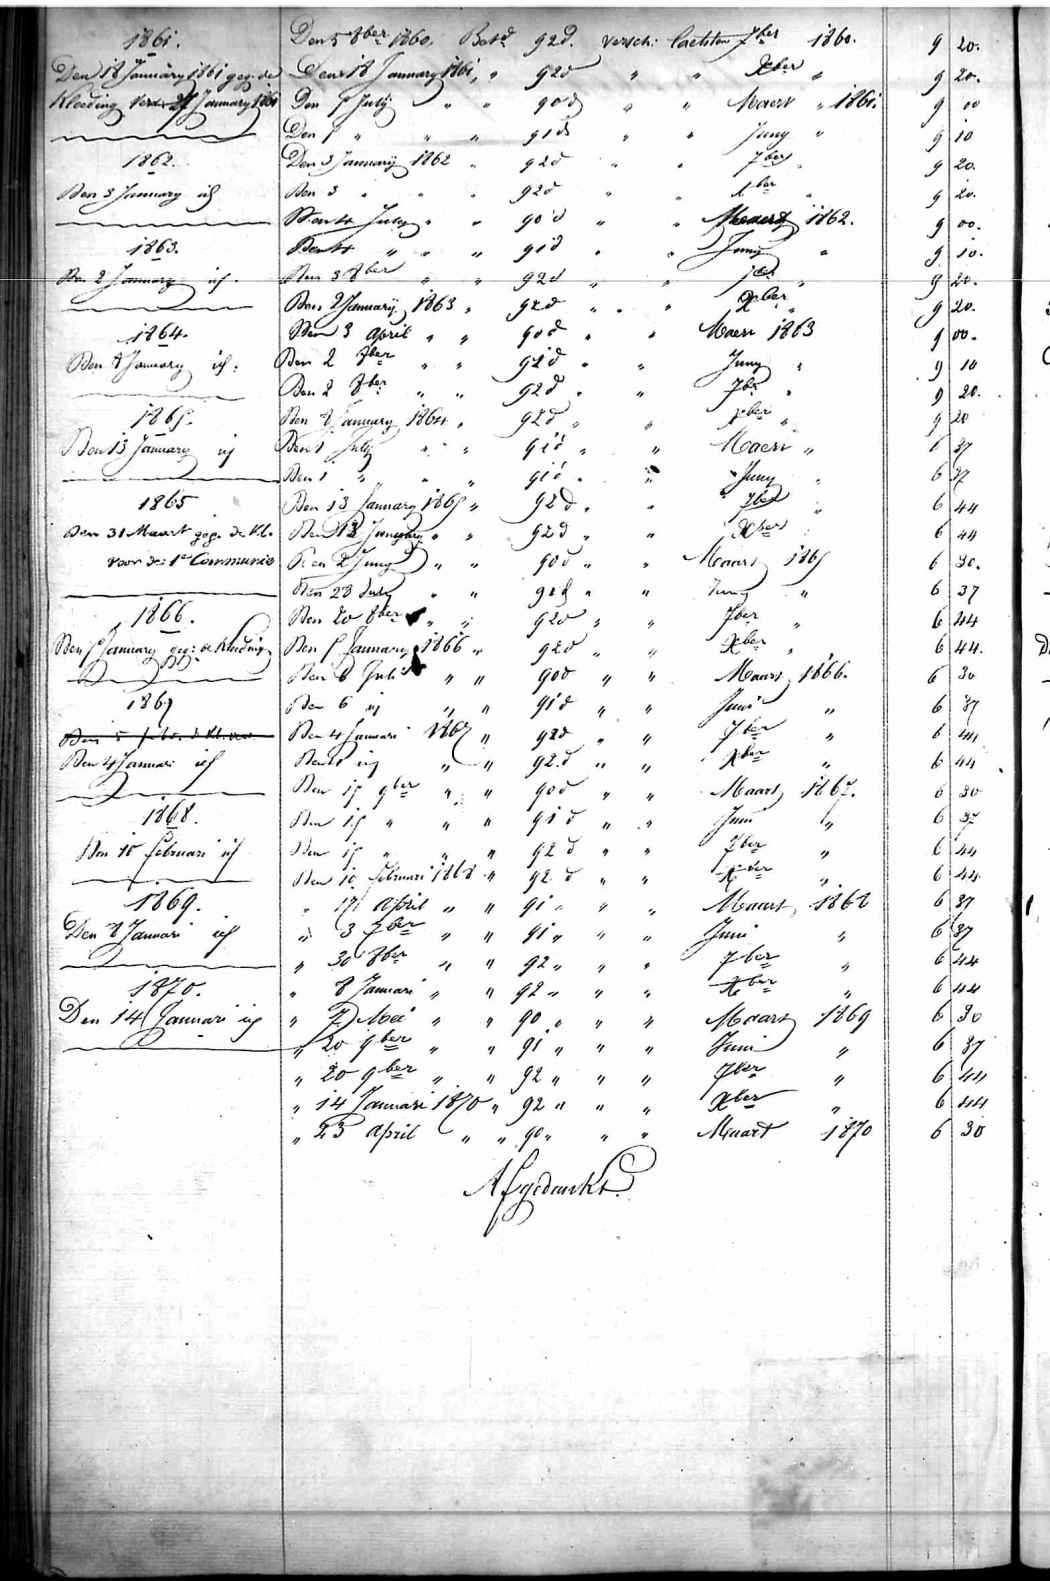 1861.
Den 18 January 1861 geg: de
Kleeding January 1861
1862.
Den 3 January id
1863.
Den 2 January id.
1864.
Den 8 January id.
1865.
Den 13 January id
1865
Den 31 Maart geg. de Kl.
voor de 1e Communie
1866.
Den 5 January geg: de Kleeding
1867
Den 4 Januari id
1868.
Den 10 februari id
1869.
Den 8 Januari id
1870.
Den 14 Januari id
Den 5 8ber 1860. Betd 92d. versch: laetsten 7ber 1860. 9 20.
Den 18 January 1861, " 92d " " Xber " 9 20.
Den 5 July " " 90d " " Maert " 1861. 9 00
Den 5 " " " 91d " " Juny " 9 10
Den 3 January 1862 " 92d " " 7ber " 9 20.
Den 3 " " " 92d " " Xber " 9 20.
Den 4 July " " 90d " " Maert 1862. 9 00.
Den 4 " " " 91d " " Juny " 9 10.
Den 3 8ber " " 92d " " 7ber " 9 20.
Den 2 January 1863 " 92d " " Xber " 9 20.
Den 3 April " " 90d " " Maert 1863 9 00.
Den 2 8ber " " 91d " " Juny " 9 10
Den 2 8ber " " 92d " " 7ber " 9 20.
Den 8 January 1864 " 92d " " Xber " 9 20
Den 1 July " " 91d " " Maert " 6 37
Den 1 " " " 91d " " Juny " 6 37
Den 13 January 1865 " 92d " " 7ber " 6 44
Den 13 January " " 92d " " Xber " 6 44
Den 2 Juny " " 90d " " Maart 1865 6 30.
Den 28 July " " 91d " " Juny " 6 37
Den 20 8ber " " 92d " " 7ber " 6 44
Den 5 January 1866 " 92d " " Xber " 6 44.
Den 6 Juli " " 90d " " Maart 1866. 6 30
Den 6 id " " 91d " " Juni " 6 37
Den 4 Januari 1867 " 92d " " 7ber " 6 44
Den 4 id " " 92.d " " Xber " 6 44
Den 15 9ber " " 90d " " Maart 1867. 6 30
Den 15 " " " 91d " " Juni " 6 37
Den 15 " " " 92d " " 7ber " 6 44
Den 10 februari 1868 " 92.d " " Xber " 6 44
" 17 April " " 91 " " " Maart 1868 6 37
" 3 7ber " " 91 " " " Juni " 6 37
" 30 8ber " " 92 " " " 7ber " 6 44
" 8 Januari " " 92 " " " Xber " 6 44
" 7 Mei " " 90 " " " Maart 1869 6 30
" 20 9ber " " 91 " " " Juni " 6 37
" 20 9ber " " 92 " " " 7ber " 6 44
" 14 Januari 1870 " 92 " " " Xber " 6 44
" 23 April " " 90 " " " Maart 1870 6 30
Afgedankt.